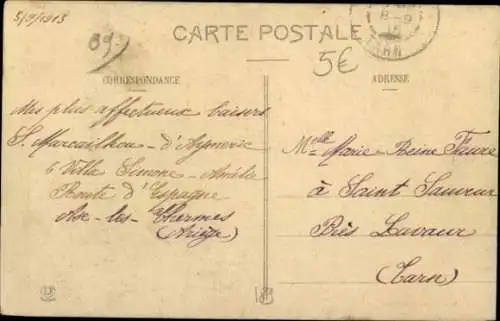 5/9/1913
89
CARTE POSTALE
8-9
TARN
5€
CORRESPONDANCE
ADRESSE
Mes plus affectueux baisers
S. Marcailhou-d'Aymeric
6 Villa Simone-Amélie
Route d'Espagne
Ax-les-Thermes
(Ariège)
Melle Marie-Reine Faure
à Saint Sauveur
Près Lavaur
(Tarn)